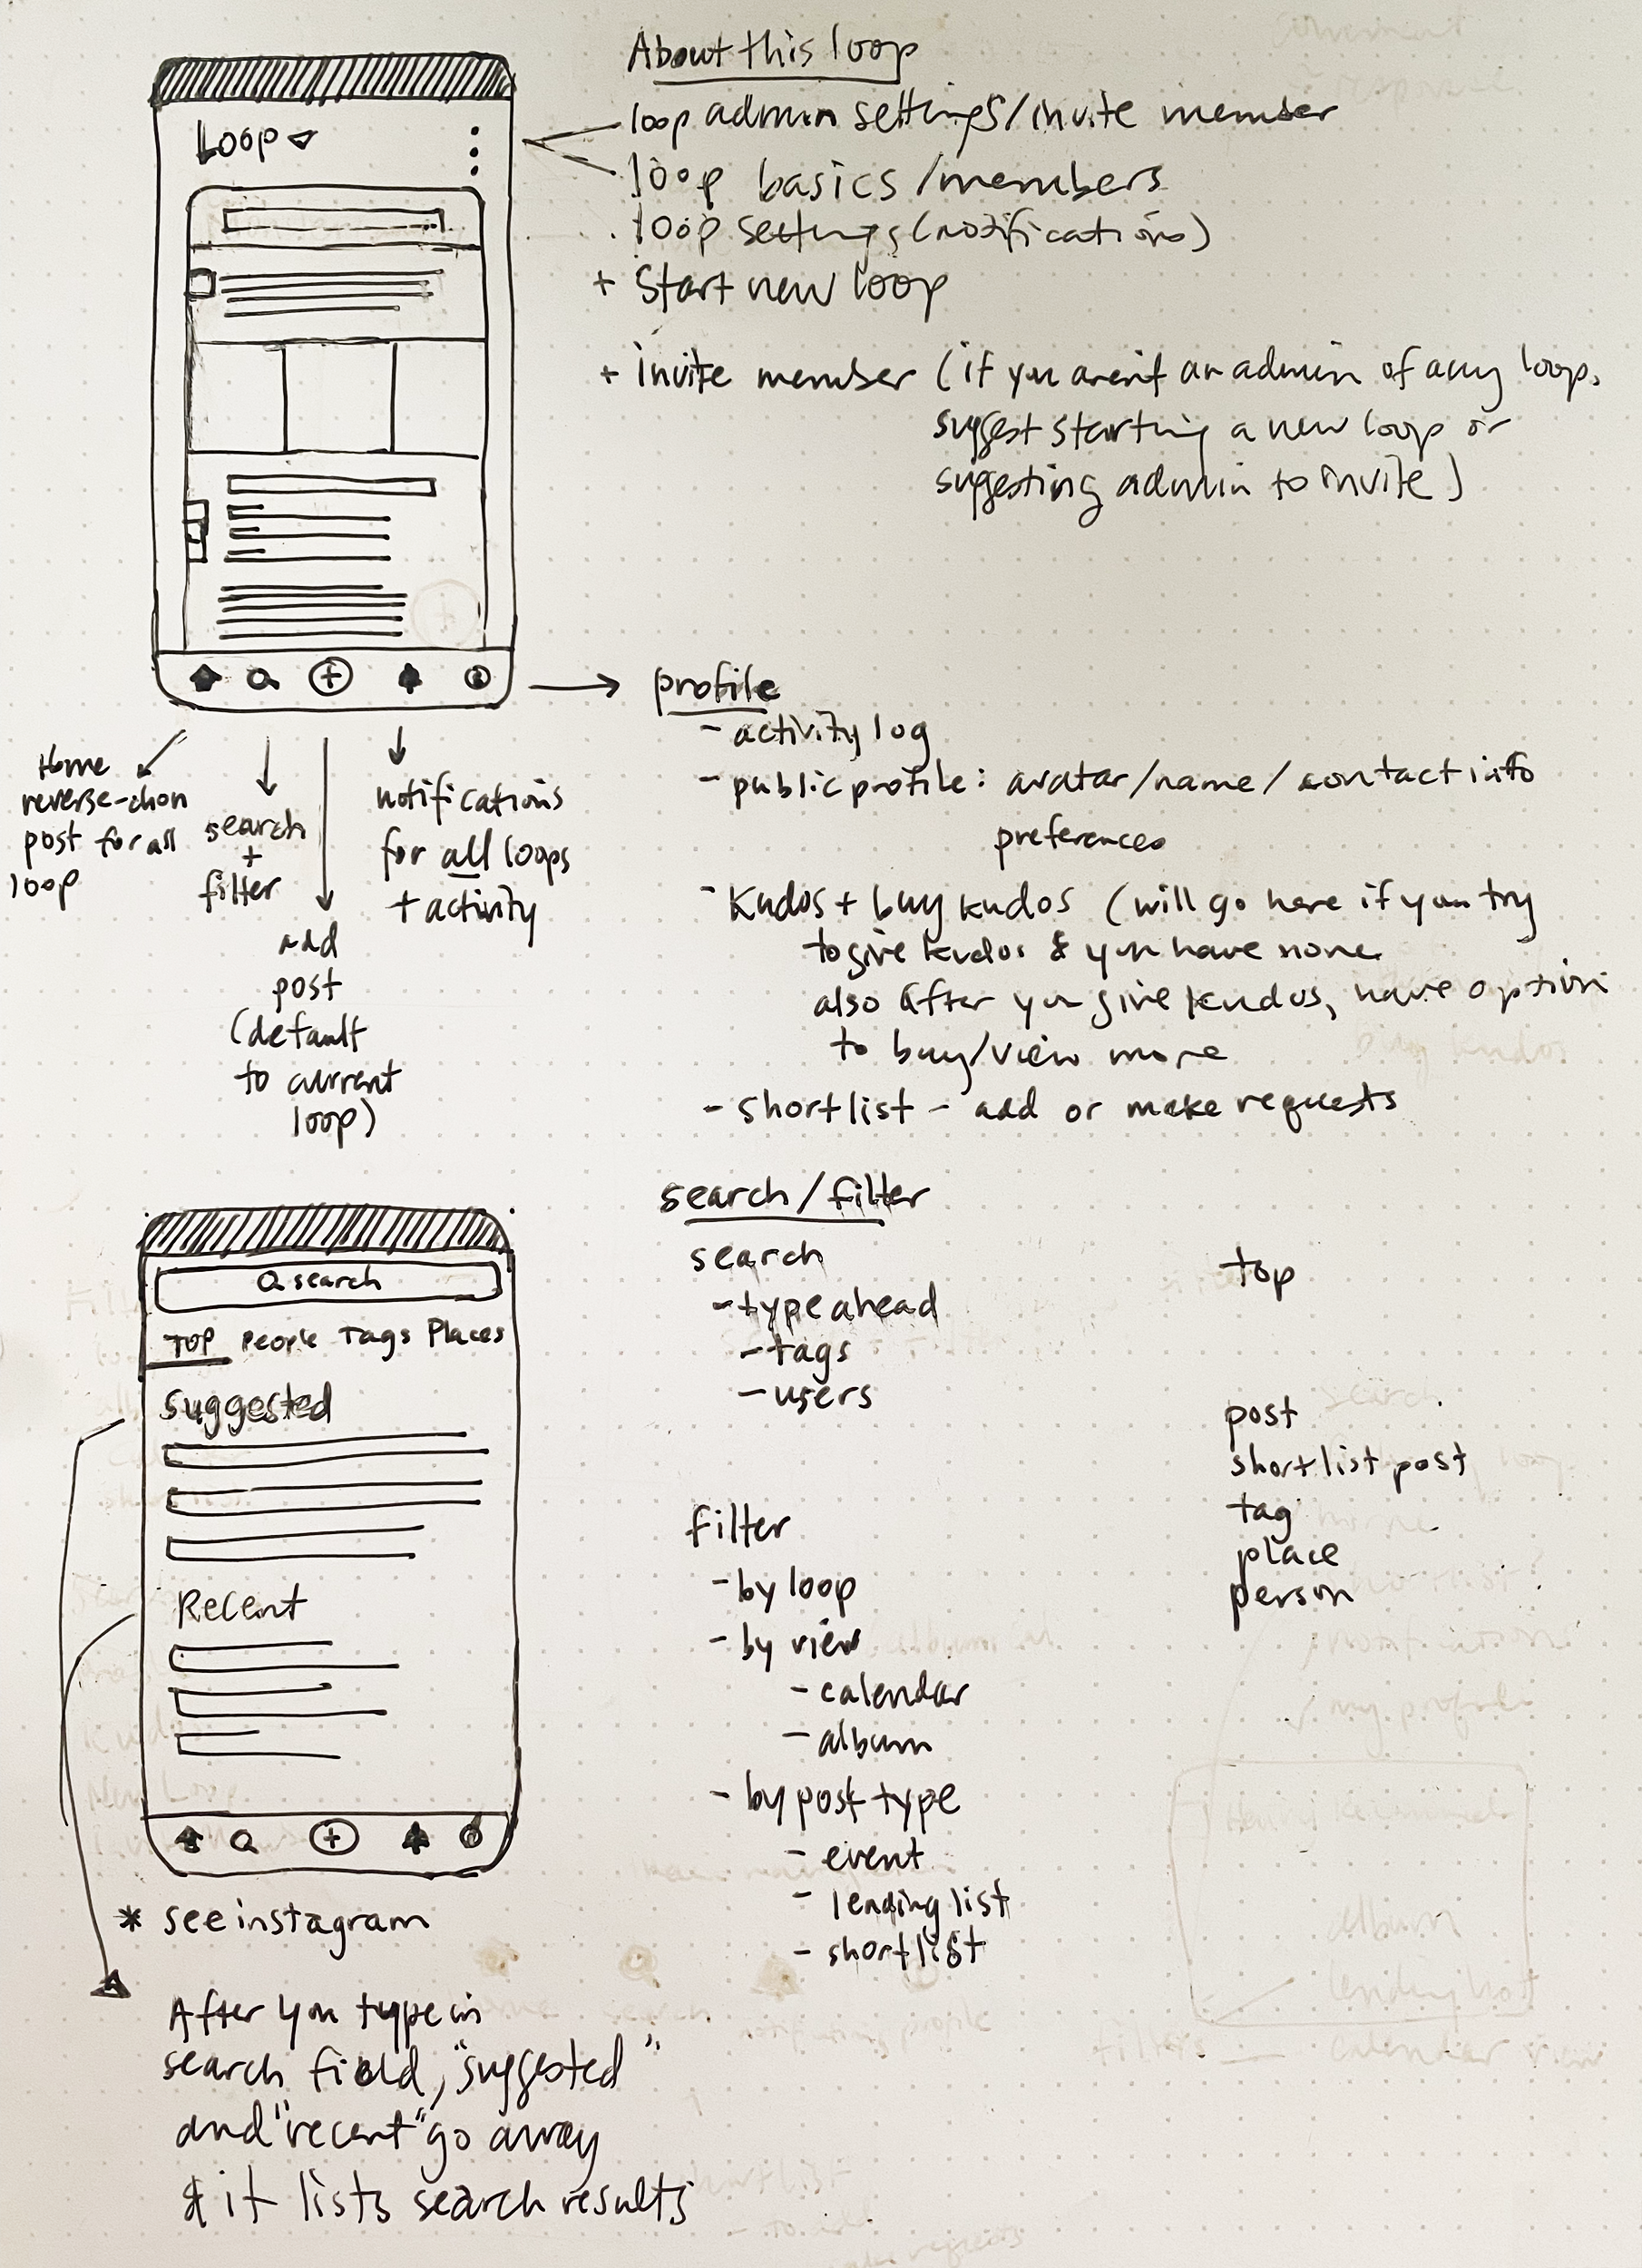 About this loop
Loop
loop admin settings/invite member
loop basics/members
loop settings (notifications)
+ Start new loop
+ invite member (if you aren't an admin of any loop,
suggest starting a new loop or
suggesting admin to invite)
Home
reverse-chon
post for all
loop
search
+
filter
add
post
(default
to current
loop)
notifications
for all loops
+ activity
profile
- activity log
- public profile: avatar/name/contact info
preferences
- Kudos + buy kudos (will go here if you try
to give kudos & you have none.
also after you give kudos, have option
to buy/view more
- shortlist - add or make requests
search
TOP People Tags Places
Suggested
Recent
* see instagram
After you type in
search field, "suggested"
and "recent" go away
& it lists search results
search/filter
search
- type ahead
- tags
- users
filter
- by loop
- by view
- calendar
- album
- by post type
- event
- lending list
- shortlist
top
post
shortlist post
tag
place
person